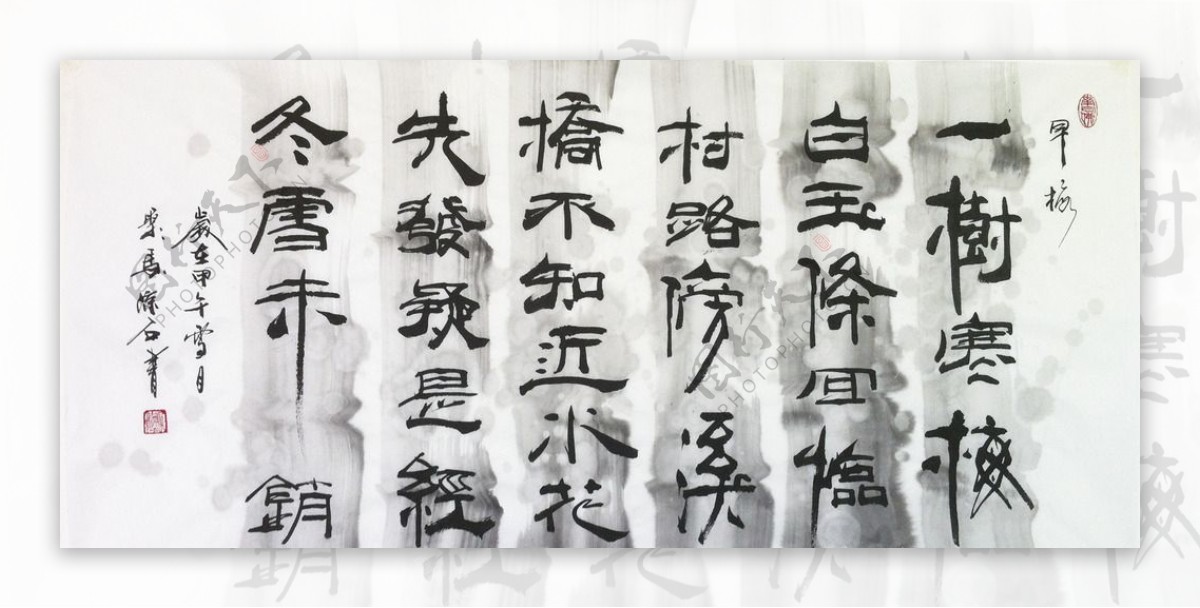 早梅
一樹寒梅
白玉條囬臨
村路傍溪
橋不知近水花
先發疑是經
冬雪未銷
歲在甲午雪月
石書
图行天下
PHOTOPHOTO.CN